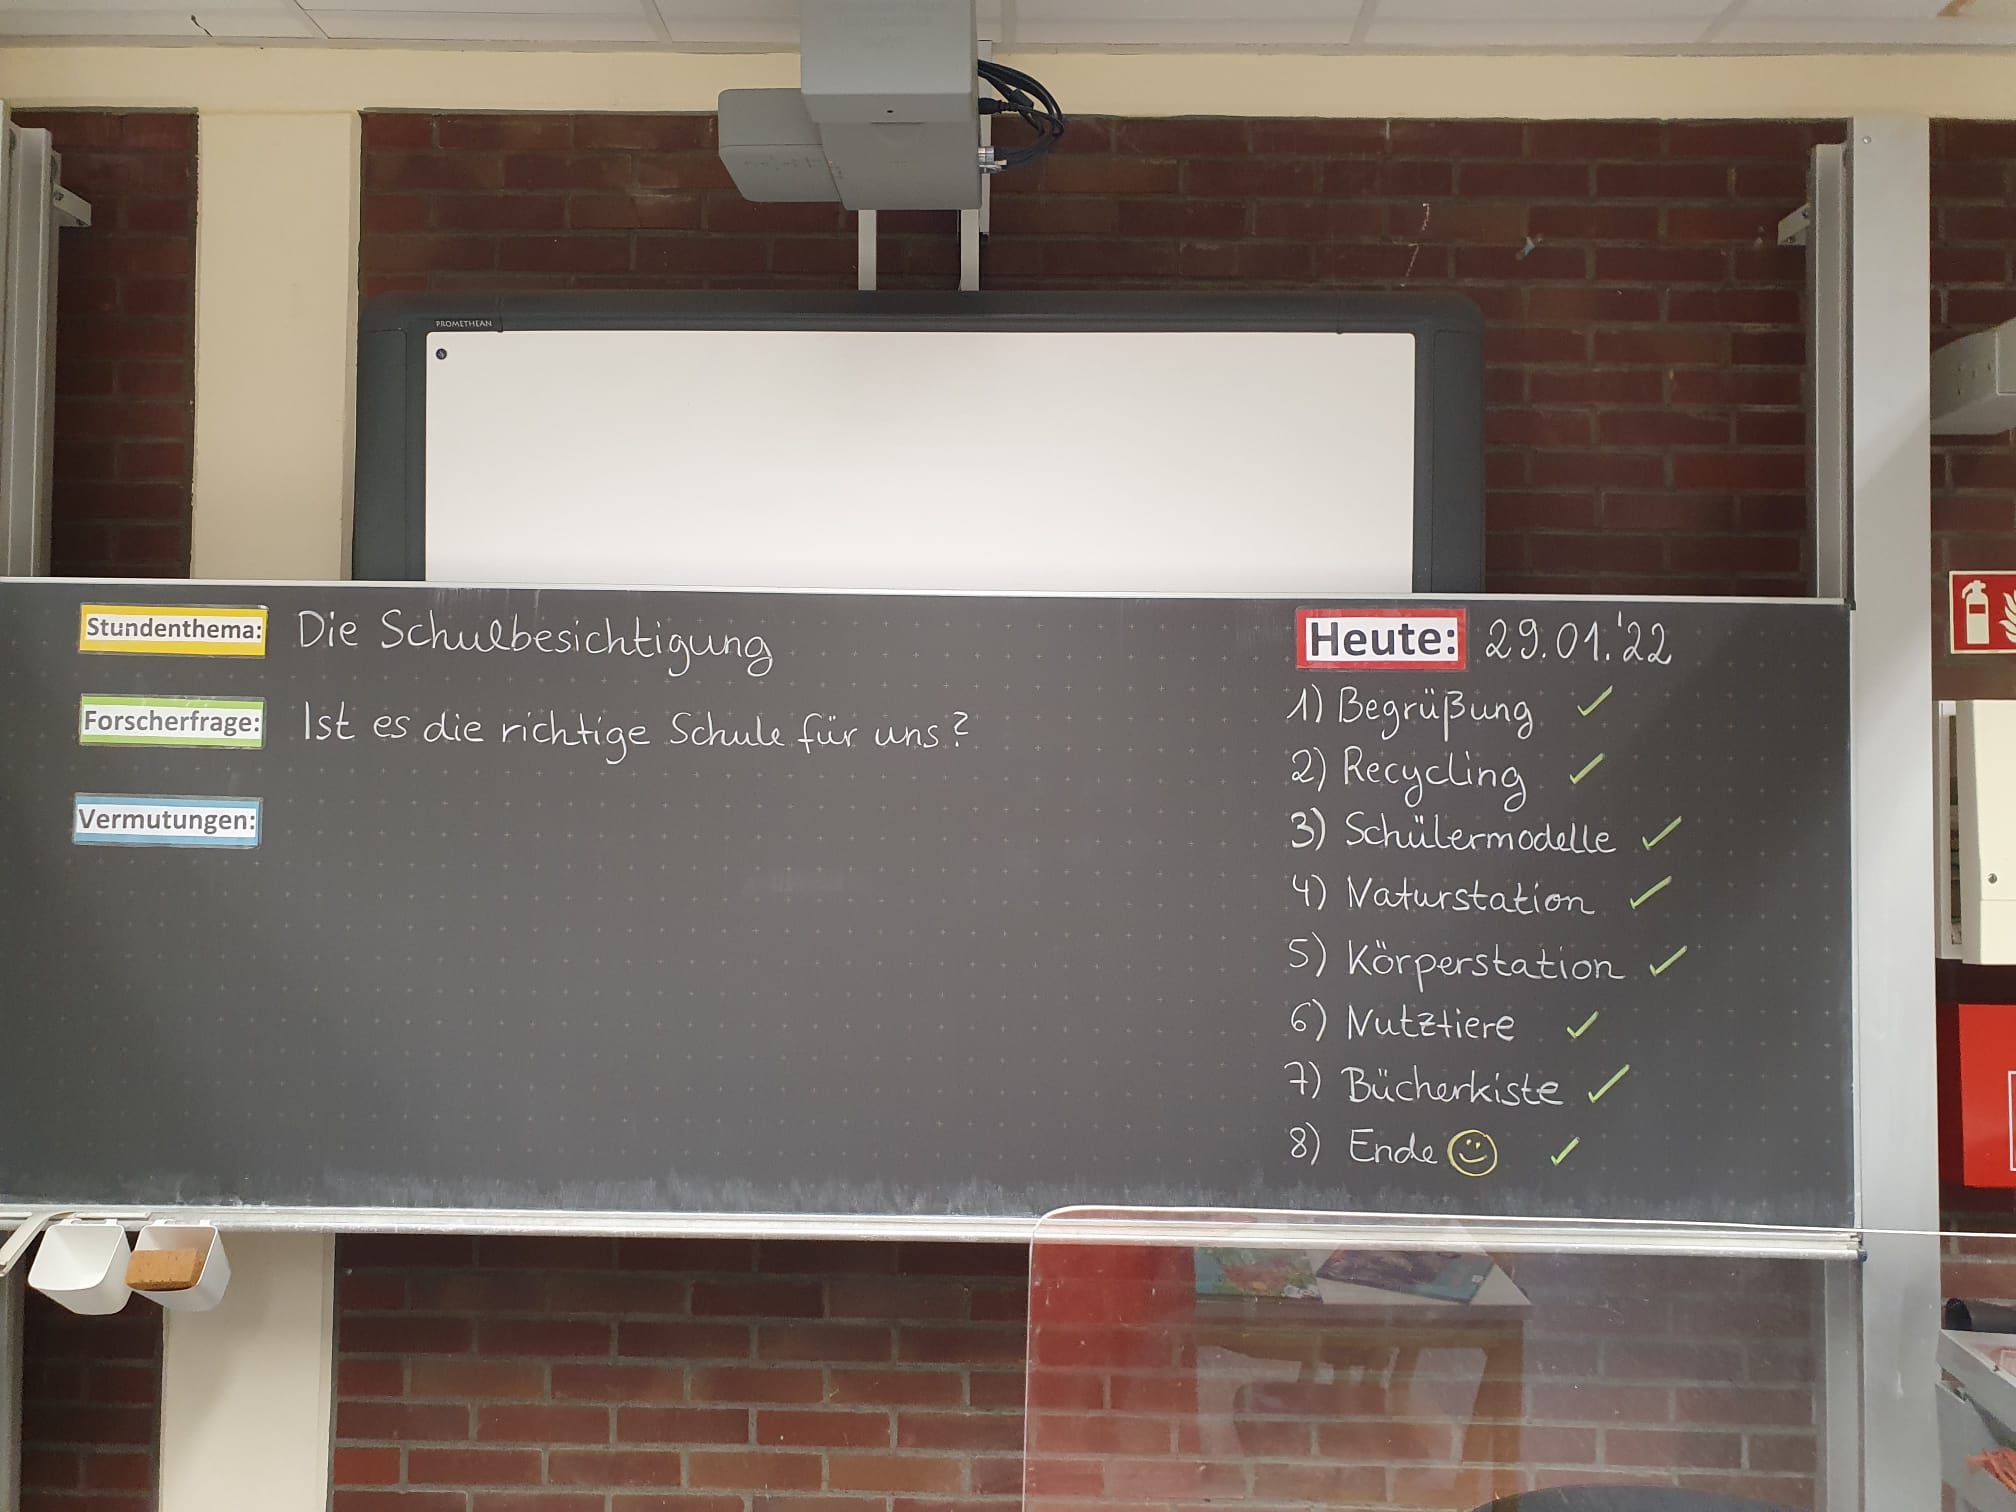 PROMETHEAN
Stundenthema: Die Schulbesichtigung
Forscherfrage: Ist es die richtige Schule für uns?
Vermutungen:
Heute: 29.01.'22
1) Begrüßung ✓
2) Recycling ✓
3) Schülermodelle ✓
4) Naturstation ✓
5) Körperstation ✓
6) Nutztiere ✓
7) Bücherkiste ✓
8) Ende ☺ ✓